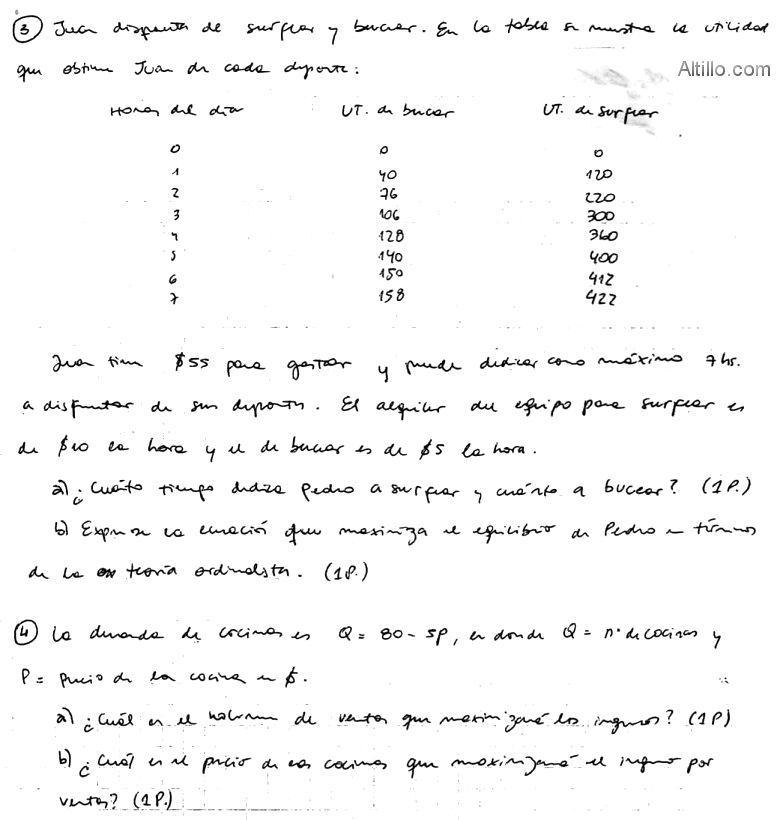 ③ Juan disfruta de surfear y bucear. En la tabla se muestra la utilidad
que obtiene Juan de cada deporte:
Altillo.com
Horas del día UT. de bucear UT. de surfear
0 0 0
1 40 120
2 76 220
3 106 300
4 128 360
5 140 400
6 150 412
7 158 422
Juan tiene $55 para gastar y puede dedicar como máximo 7 hs.
a disfrutar de sus deportes. El alquiler del equipo para surfear es
de $10 la hora y el de bucear es de $5 la hora.
a) ¿Cuánto tiempo dedica Pedro a surfear y cuánto a bucear? (1P.)
b) Exprese la ecuación que maximiza el equilibrio de Pedro en términos
de la teoría ordinalista. (1P.)
④ La demanda de cocinas es Q = 80 - 5P, en donde Q = nº de cocinas y
P = precio de la cocina en $.
a) ¿Cuál es el volumen de ventas que maximizará los ingresos? (1P)
b) ¿Cuál es el precio de las cocinas que maximizará el ingreso por
ventas? (1P.)